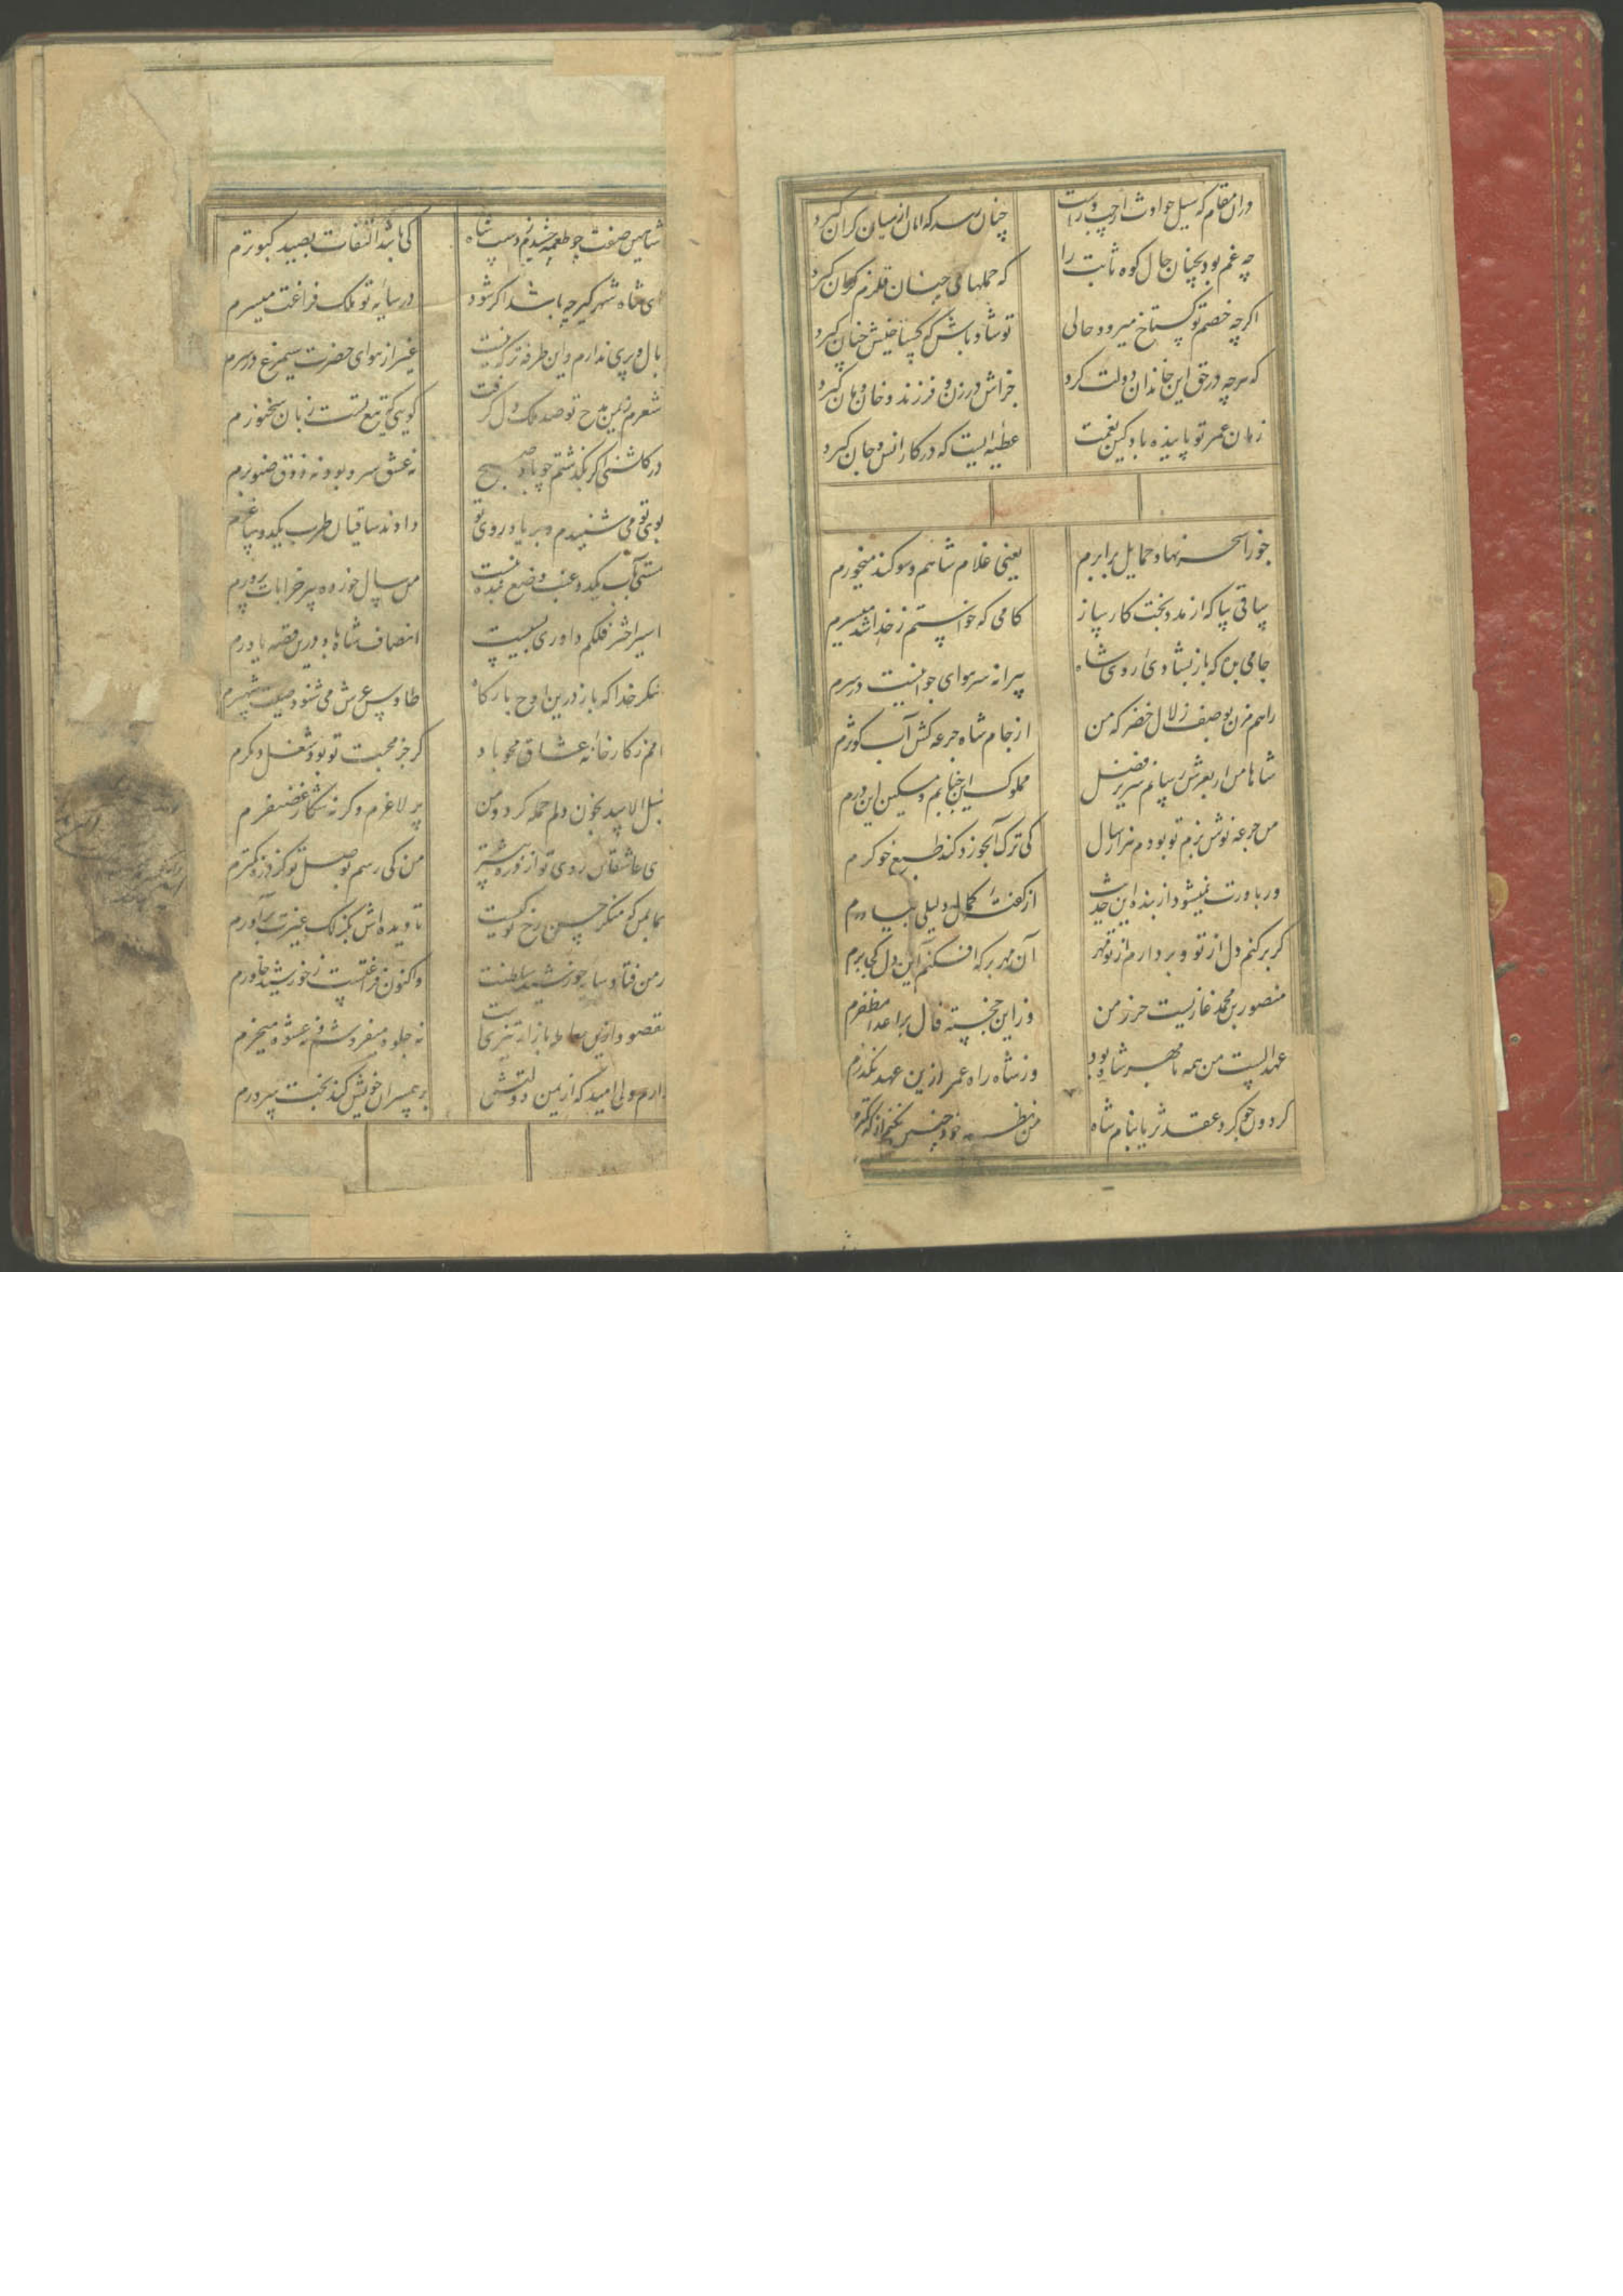 دران مقام که سیل حوادث از چپ و راست
چنان رسد که امان از میان کران کیرد
چه غم بود بچنان حال کوه ثابت را
که حملهای چنان قلزم کران کیرد
اکرچه خصم تو کستاخ میرود حالی
تو شاد باش که کستاخیش چنان کیرد
که هرچه در حق این خاندان دولت کرد
جزاش در زن و فرزند و خان و مان کیرد
زمان عمر تو پاینده باد کین نعمت
عطیه ایست که در کار انس و جان کیرد
جوزا سحر نهاد حمایل برابرم
یعنی غلام شاهم و سوکند میخورم
ساقی بیا که از مدد بخت کارساز
کامی که خواستم ز خدا شد میسرم
جامی بده که باز بشادی روی شاه
پیرانه سر هوای جوانیست در سرم
راهم مزن بوصف زلال خضر که من
از جام شاه جرعه کش آب کوثرم
شاها من ار بعرش رسانم سریر فضل
مملوک این جنابم و مسکین این درم
من جرعه نوش بزم تو بودم هزار سال
کی ترک آبخورد کند طبع خوکرم
ور باورت نمیشود از بنده این حدیث
از کفته کمال دلیلی بیاورم
کر برکنم دل از تو و بردارم از تو مهر
آن مهر بر که افکنم این دل کجا برم
منصور بن محمد غازیست حرز من
وز این خجسته فال بر اعدا مظفرم
عهد الست من همه با مهر شاه بود
وز شاه راه عمر ازین عهد نکذرم
کردون چو کرد عقد ثریا بنام شاه
من نظم خود چرا نکنم از که کمترم
شاهین صفت چو طعمه چشیدم ز دست شاه
کی باشد التفات بصید کبوترم
ای شاه شهر کیر چه باشد اکر شود
در سایه تو ملک فراغت میسرم
بال و پری ندارم و این طرفه تر که نیست
غیر از هوای حضرت سیمرغ در سرم
شعرم بیمن مدح تو صد ملک دل کرفت
کویی که تیغ تست زبان سخنورم
در کلشنی اکر بکذشتم چو باد صبح
نه عشق سرو بود و نه ذوق صنوبرم
بوی تو می شنیدم و بر یاد روی تو
دادند ساقیان طرب یکدو ساغرم
مستی بآب یکدو عنب وضع بنده نیست
من سال خورده پیر خرابات پرورم
با سیر اختر فلکم داوری بسیست
انصاف شاه باد درین قصه یاورم
شکر خدا که باز درین اوج بارکاه
طاوس عرش می شنود صیت شهپرم
نامم ز کارخانه عشاق محو باد
کر جز محبت تو بود شغل دیکرم
شبل الاسد بخون دلم حمله کرد و من
پر لاغرم وکرنه شکار غضنفرم
ای عاشقان روی تو از ذره بیشتر
من کی رسم بوصل تو کز ذره کمترم
بنمای من که منکر حسن رخ تو کیست
تا دیده اش بکزلک غیرت برآورم
بر من فتاد سایه خورشید سلطنت
و اکنون فراغتست ز خورشید خاورم
مقصود ازین معامله بازار تیزی است
نه جلوه میفروشم و نه عشوه میخرم
دارم ولی امید که از یمن دولتش
بر همسران خویش کند بخت سرورم